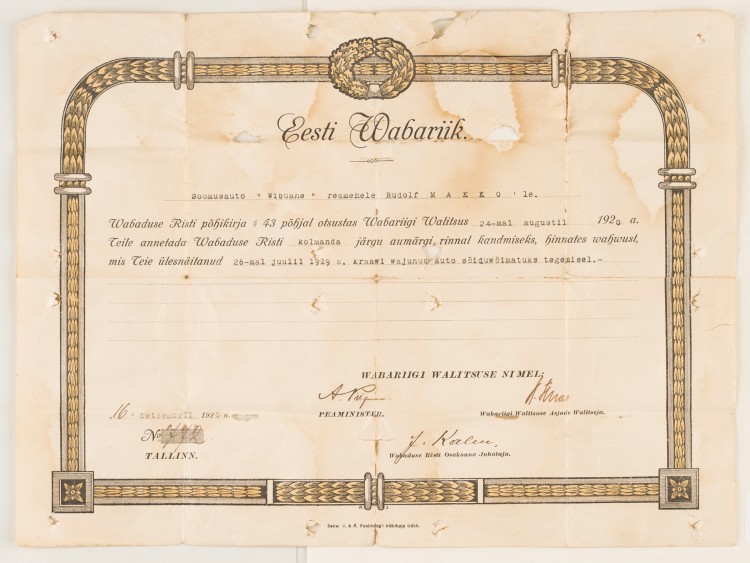 Eesti Wabariik.
Soomusauto " Wibuane " reamehele Rudolf M A K K O 'le.
Wabaduse Risti põhikirja § 43 põhjal otsustas Wabariigi Walitsus 24-mal augustil 1920 a.
Teile annetada Wabaduse Risti kolmanda järgu aumärgi, rinnal kandmiseks, hinnates wahwust,
mis Teie ülesnäitanud 26-mal juulil 1919 a. kraawi wajunud auto sõiduwõimatuks tegemisel.-
WABARIIGI WALITSUSE NIMEL:
PEAMINISTER.
Wabariigi Walitsuse Asjade Walitseja.
16. detsembril 1920 a.
No
J. Kalm.
TALLINN.
Wabaduse Risti Osakonna Juhataja.